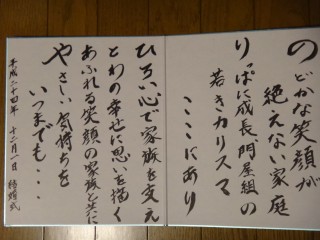 のどかな笑顔が
絶えない家庭
りっぱに成長門屋組の
若きカリスマ
ここにあり
ひろい心で家族を支え
とわの幸せに思いを描く
あふれる笑顔の家族と共に
やさしい気持ちを
いつまでも・・・
平成二十四年 十二月一日 結婚式